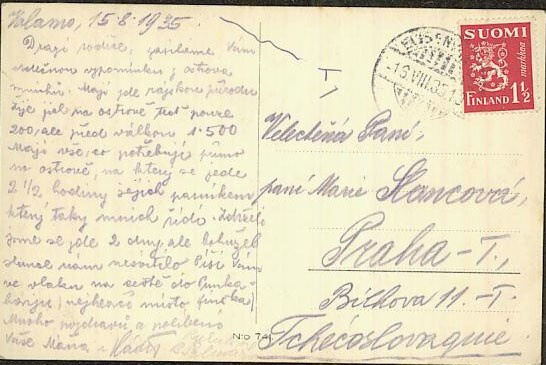 Valamo, 15.8.1935.
Drazí rodiče, zasíláme Vám
srdečnou vzpomínku z ostrova
mnichů. Mají zde rajskou přírodu
žije jich na ostrově teď pouze
200, ale před válkou 1·500
Mají vše, co potřebují přímo
na ostrově, na který se jede
2 1/2 hodiny jejich parníkem
který taky mnich řídí. Zdrželi
jsme se zde 2 dny, ale bohužel
slunce nám nesvítilo Píši Vám
ve vlaku na cestě do Punka-
harju (nejhezčí místo finska)
Mnoho pozdravů a políbení
Vaše Mana
SUOMI
markkaa
FINLAND 1 1/2
-15.VIII.35
Velectěná Paní,
paní Marie Slancová,
Praha-I.,
Bílkova 11.-I.
Tchécoslovaquie.
N:o 74